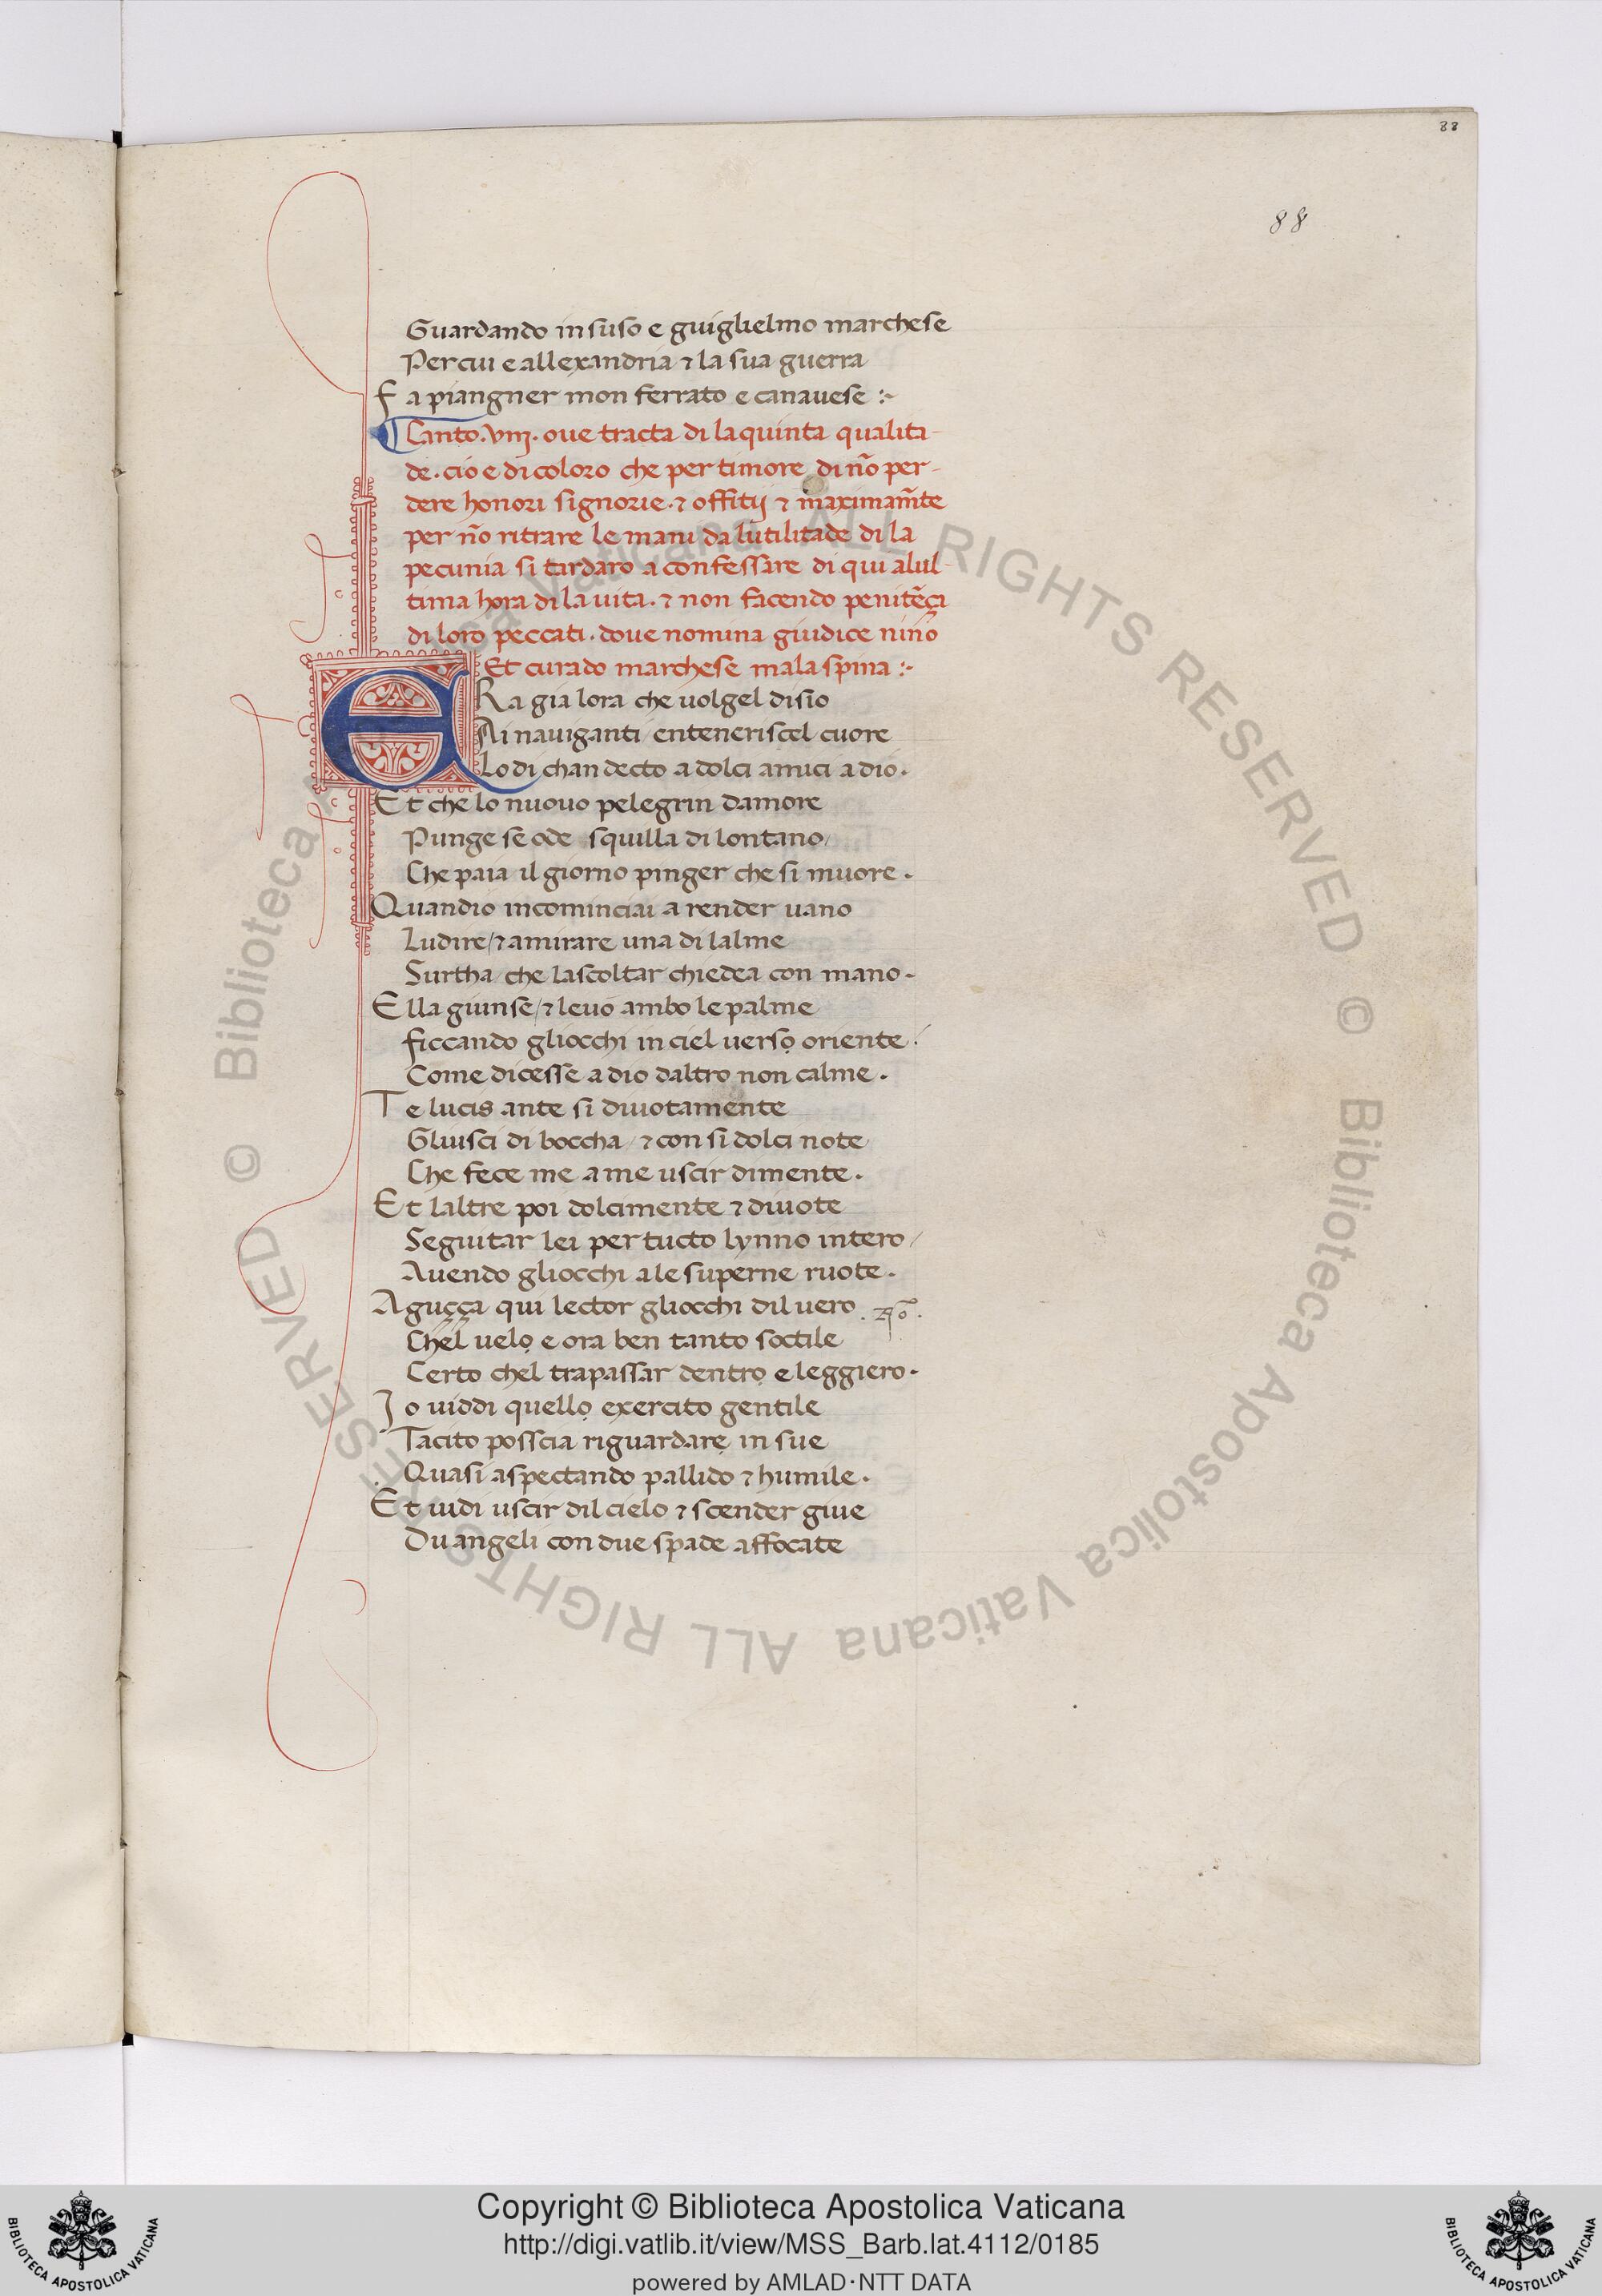 88
88
Guardando in suso e guiglielmo marchese
Per cui e allexandria ⁊ la sua guerra
Fa piangner mon ferrato e canauese :~
¶ Canto .viij. oue tracta di la quinta qualita-
de . cio e di coloro che per timore di nō per-
dere honori signorie . ⁊ offitij ⁊ maximam̄te
per nō ritrare le mani da lutilitade di la
pecunia si tardaro a confessare di qui alul-
tima hora di la uita . ⁊ non facendo penitēçi
di loro peccati . doue nomina giudice nino
Et curado marchese mala spina :~
ERa gia lora che uolgel disio
Ai nauiganti / enteneriscel cuore
Lo di chan decto a dolci amici a dio .
Et che lo nuouo pelegrin damore
Punge se ode squilla di lontano /
Che paia il giorno pinger che si muore .
Quandio incominciai a render uano
Ludire / ⁊ amirare una di lalme
Surtha / che lascoltar chiedea con mano .
Ella giunse / ⁊ leuo ambo le palme
ficcando gliocchi in ciel uerso oriente .
Come dicesse a dio daltro non calme .
Te lucis ante si diuotamente
Gliusci di boccha / ⁊ con si dolci note
Che fece me a me uscir dimente .
Et laltre poi dolcimente ⁊ diuote
Seguitar lei per tucto lynno intero /
Auendo gliocchi ale superne ruote .
Aguçça qui lector gliocchi dil uero
Chel uelo e ora ben tanto soctile
Certo chel trapassar dentro e leggiero .
Io uiddi quello exercito gentile
Tacito posscia riguardare in sue
Quasi aspectando pallido ⁊ humile .
Et uidi uscir dil cielo ⁊ scender giue
Du angeli con due spade affocate
© Biblioteca Apostolica Vaticana ALL RIGHTS RESERVED
© Biblioteca Apostolica Vaticana ALL RIGHTS RESERVED
Copyright © Biblioteca Apostolica Vaticana
http://digi.vatlib.it/view/MSS_Barb.lat.4112/0185
powered by AMLAD·NTT DATA
BIBLIOTECA APOSTOLICA VATICANA
BIBLIOTECA APOSTOLICA VATICANA